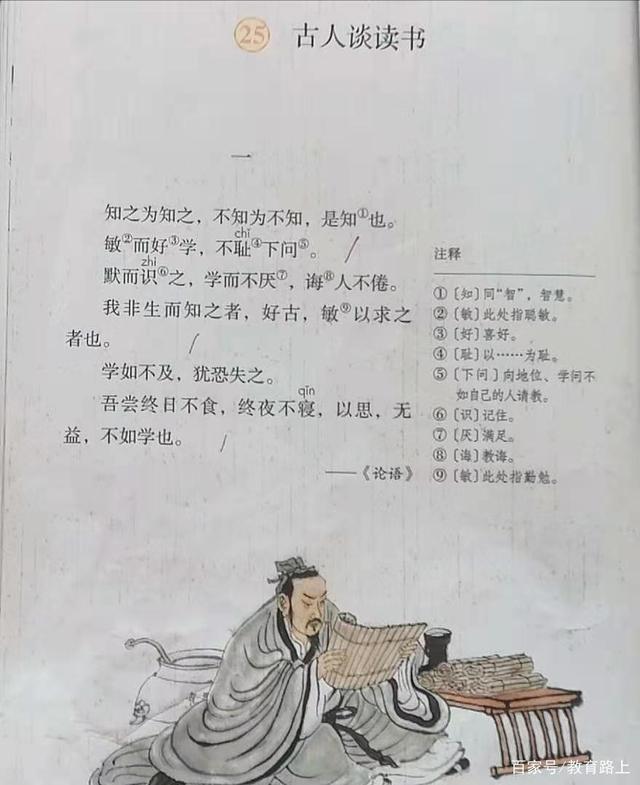 25 古人谈读书
一
知之为知之，不知为不知，是知①也。
chǐ
敏②而好③学，不耻④下问⑤。
zhì
默而识⑥之，学而不厌⑦，诲⑧人不倦。
我非生而知之者，好古，敏⑨以求之
者也。
学如不及，犹恐失之。
qǐn
吾尝终日不食，终夜不寝，以思，无
益，不如学也。
——《论语》
注释
①〔知〕同“智”，智慧。
②〔敏〕此处指聪敏。
③〔好〕喜好。
④〔耻〕以……为耻。
⑤〔下问〕向地位、学问不
如自己的人请教。
⑥〔识〕记住。
⑦〔厌〕满足。
⑧〔诲〕教诲。
⑨〔敏〕此处指勤勉。
百家号/教育路上